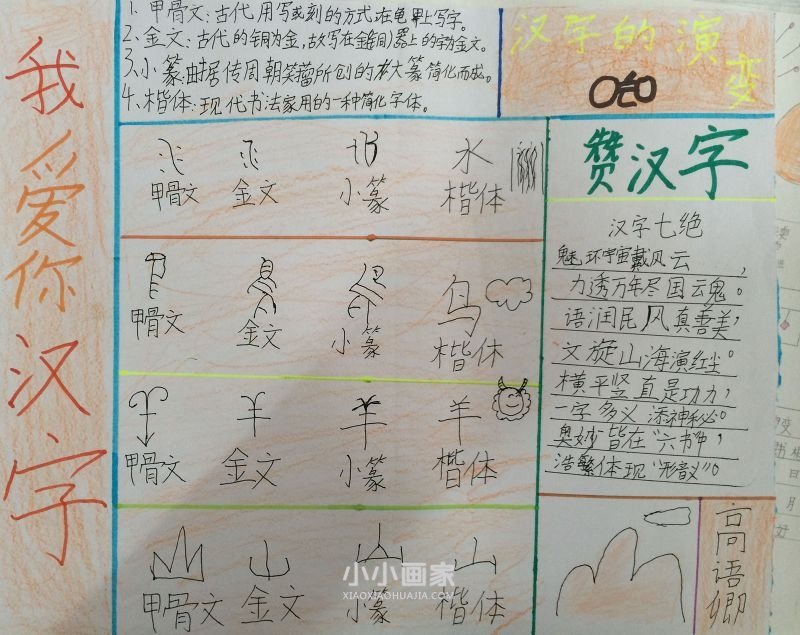 我爱你汉字
1、甲骨文:古代用写或刻的方式在龟甲上写字。
2、金文:古代的铜为金,故写在金(铜)器上的字为金文。
3、小篆由据传周朝 所创的 大篆简化而成。
4、楷体:现代书法家用的一种简化字体。
汉字的演变
水
甲骨文 金文 小篆 楷体
鸟
甲骨文 金文 小篆 楷体
羊 羊
甲骨文 金文 小篆 楷体
山
甲骨文 金文 小篆 楷体
赞汉字
汉字七绝
魅环宇宙戴风云,
力透万年尽国云魂。
语润民风真善美,
文旋山海演红尘。
横平竖直是功力,
一字多义添神秘。
奥妙皆在“六书”中,
浩繁体现“形音义”。
高语卿
小小画家
XIAOXIAOHUAJIA.COM